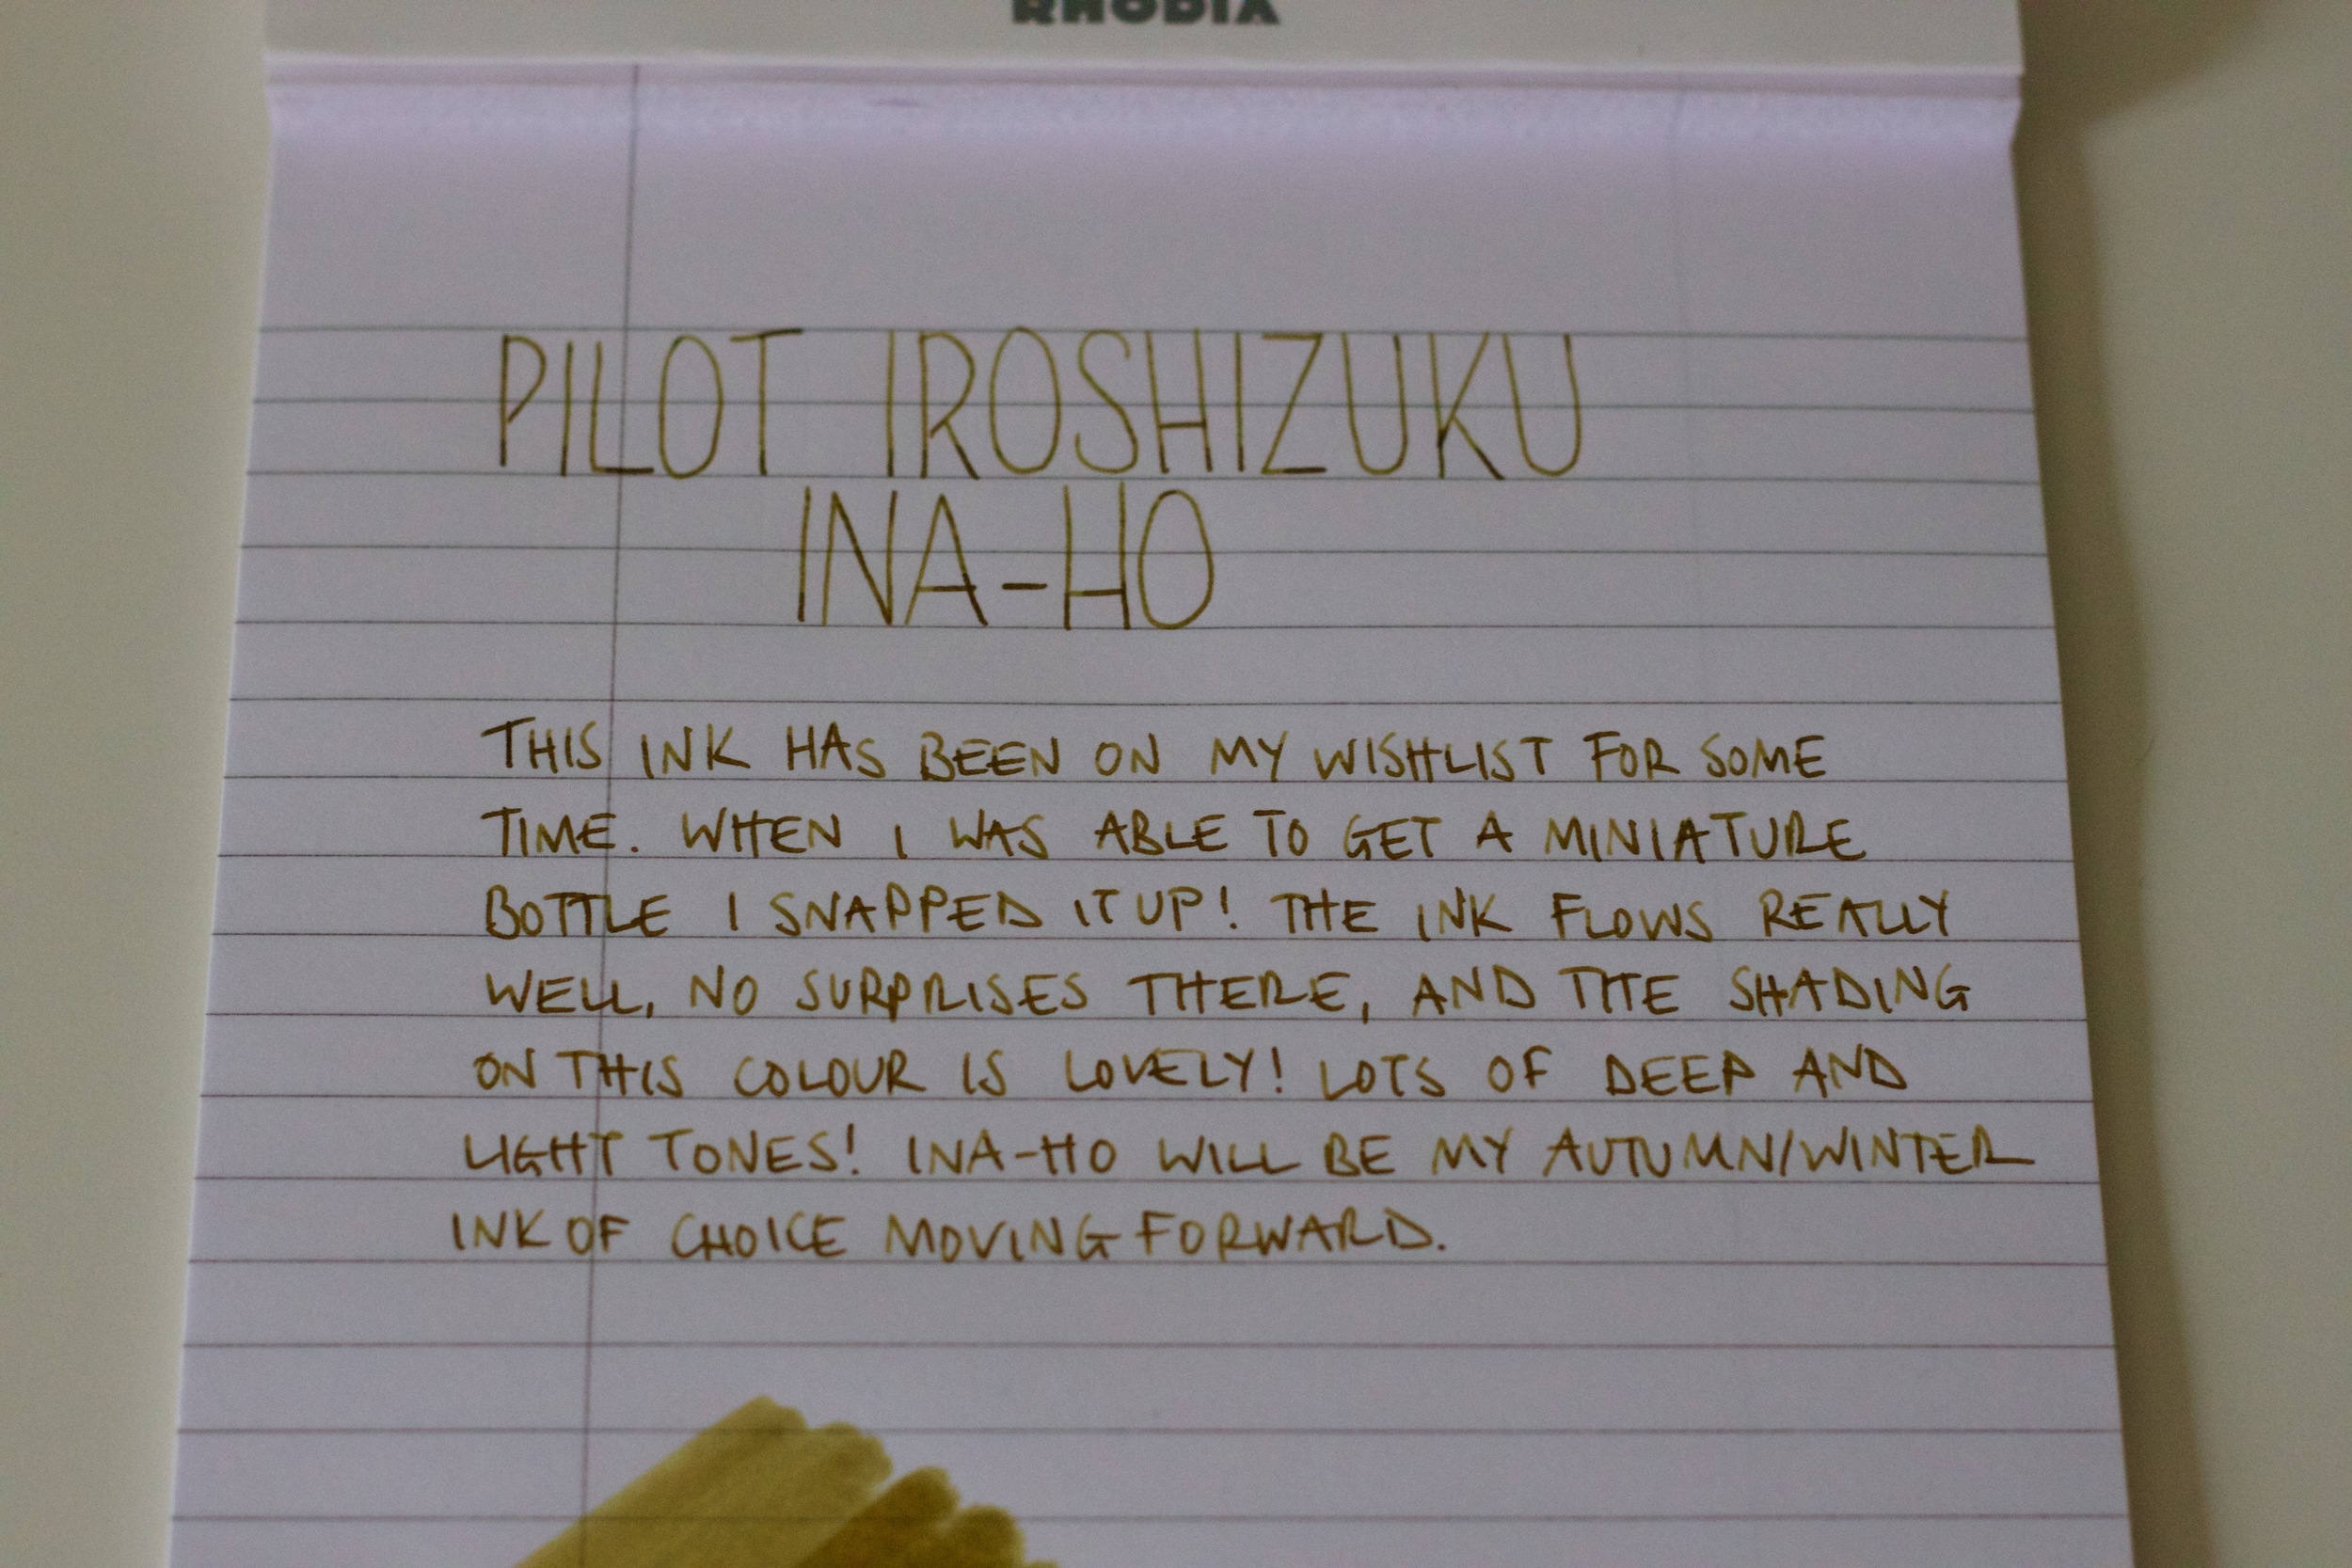 RHODIA
PILOT IROSHIZUKU
INA-HO
THIS INK HAS BEEN ON MY WISHLIST FOR SOME
TIME. WHEN I WAS ABLE TO GET A MINIATURE
BOTTLE I SNAPPED IT UP! THE INK FLOWS REALLY
WELL, NO SURPRISES THERE, AND THE SHADING
ON THIS COLOUR IS LOVELY! LOTS OF DEEP AND
LIGHT TONES! INA-HO WILL BE MY AUTUMN/WINTER
INK OF CHOICE MOVING FORWARD.